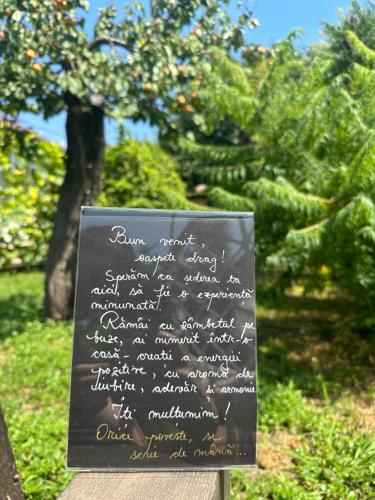 Bun venit,
oaspete drag!
Sperăm ca șederea ta
aici, să fie o experiență
minunată.
Rămâi cu zâmbetul pe
buze, ai nimerit într-o
casă - creată a energiei
pozitive, cu aromă de
iubire, adevăr și armonie
Îți mulțumim!
Orice poveste, se
scrie de mână...